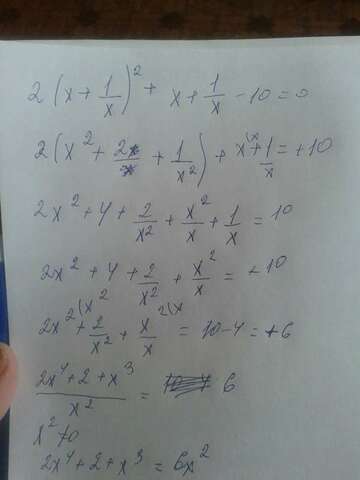 2(x + 1/x)² + x + 1/x - 10 = 0
2(x² + 2x/x + 1/x²) + x + 1/x = +10
2x² + 4 + 2/x² + x²/x + 1/x = 10
2x² + 4 + 2/x² + x²/x = +10
2x² + 2/x² + x/x = 10 - 4 = +6
(2x⁴ + 2 + x³)/x² = 6
x² ≠ 0
2x⁴ + 2 + x³ = 6x²